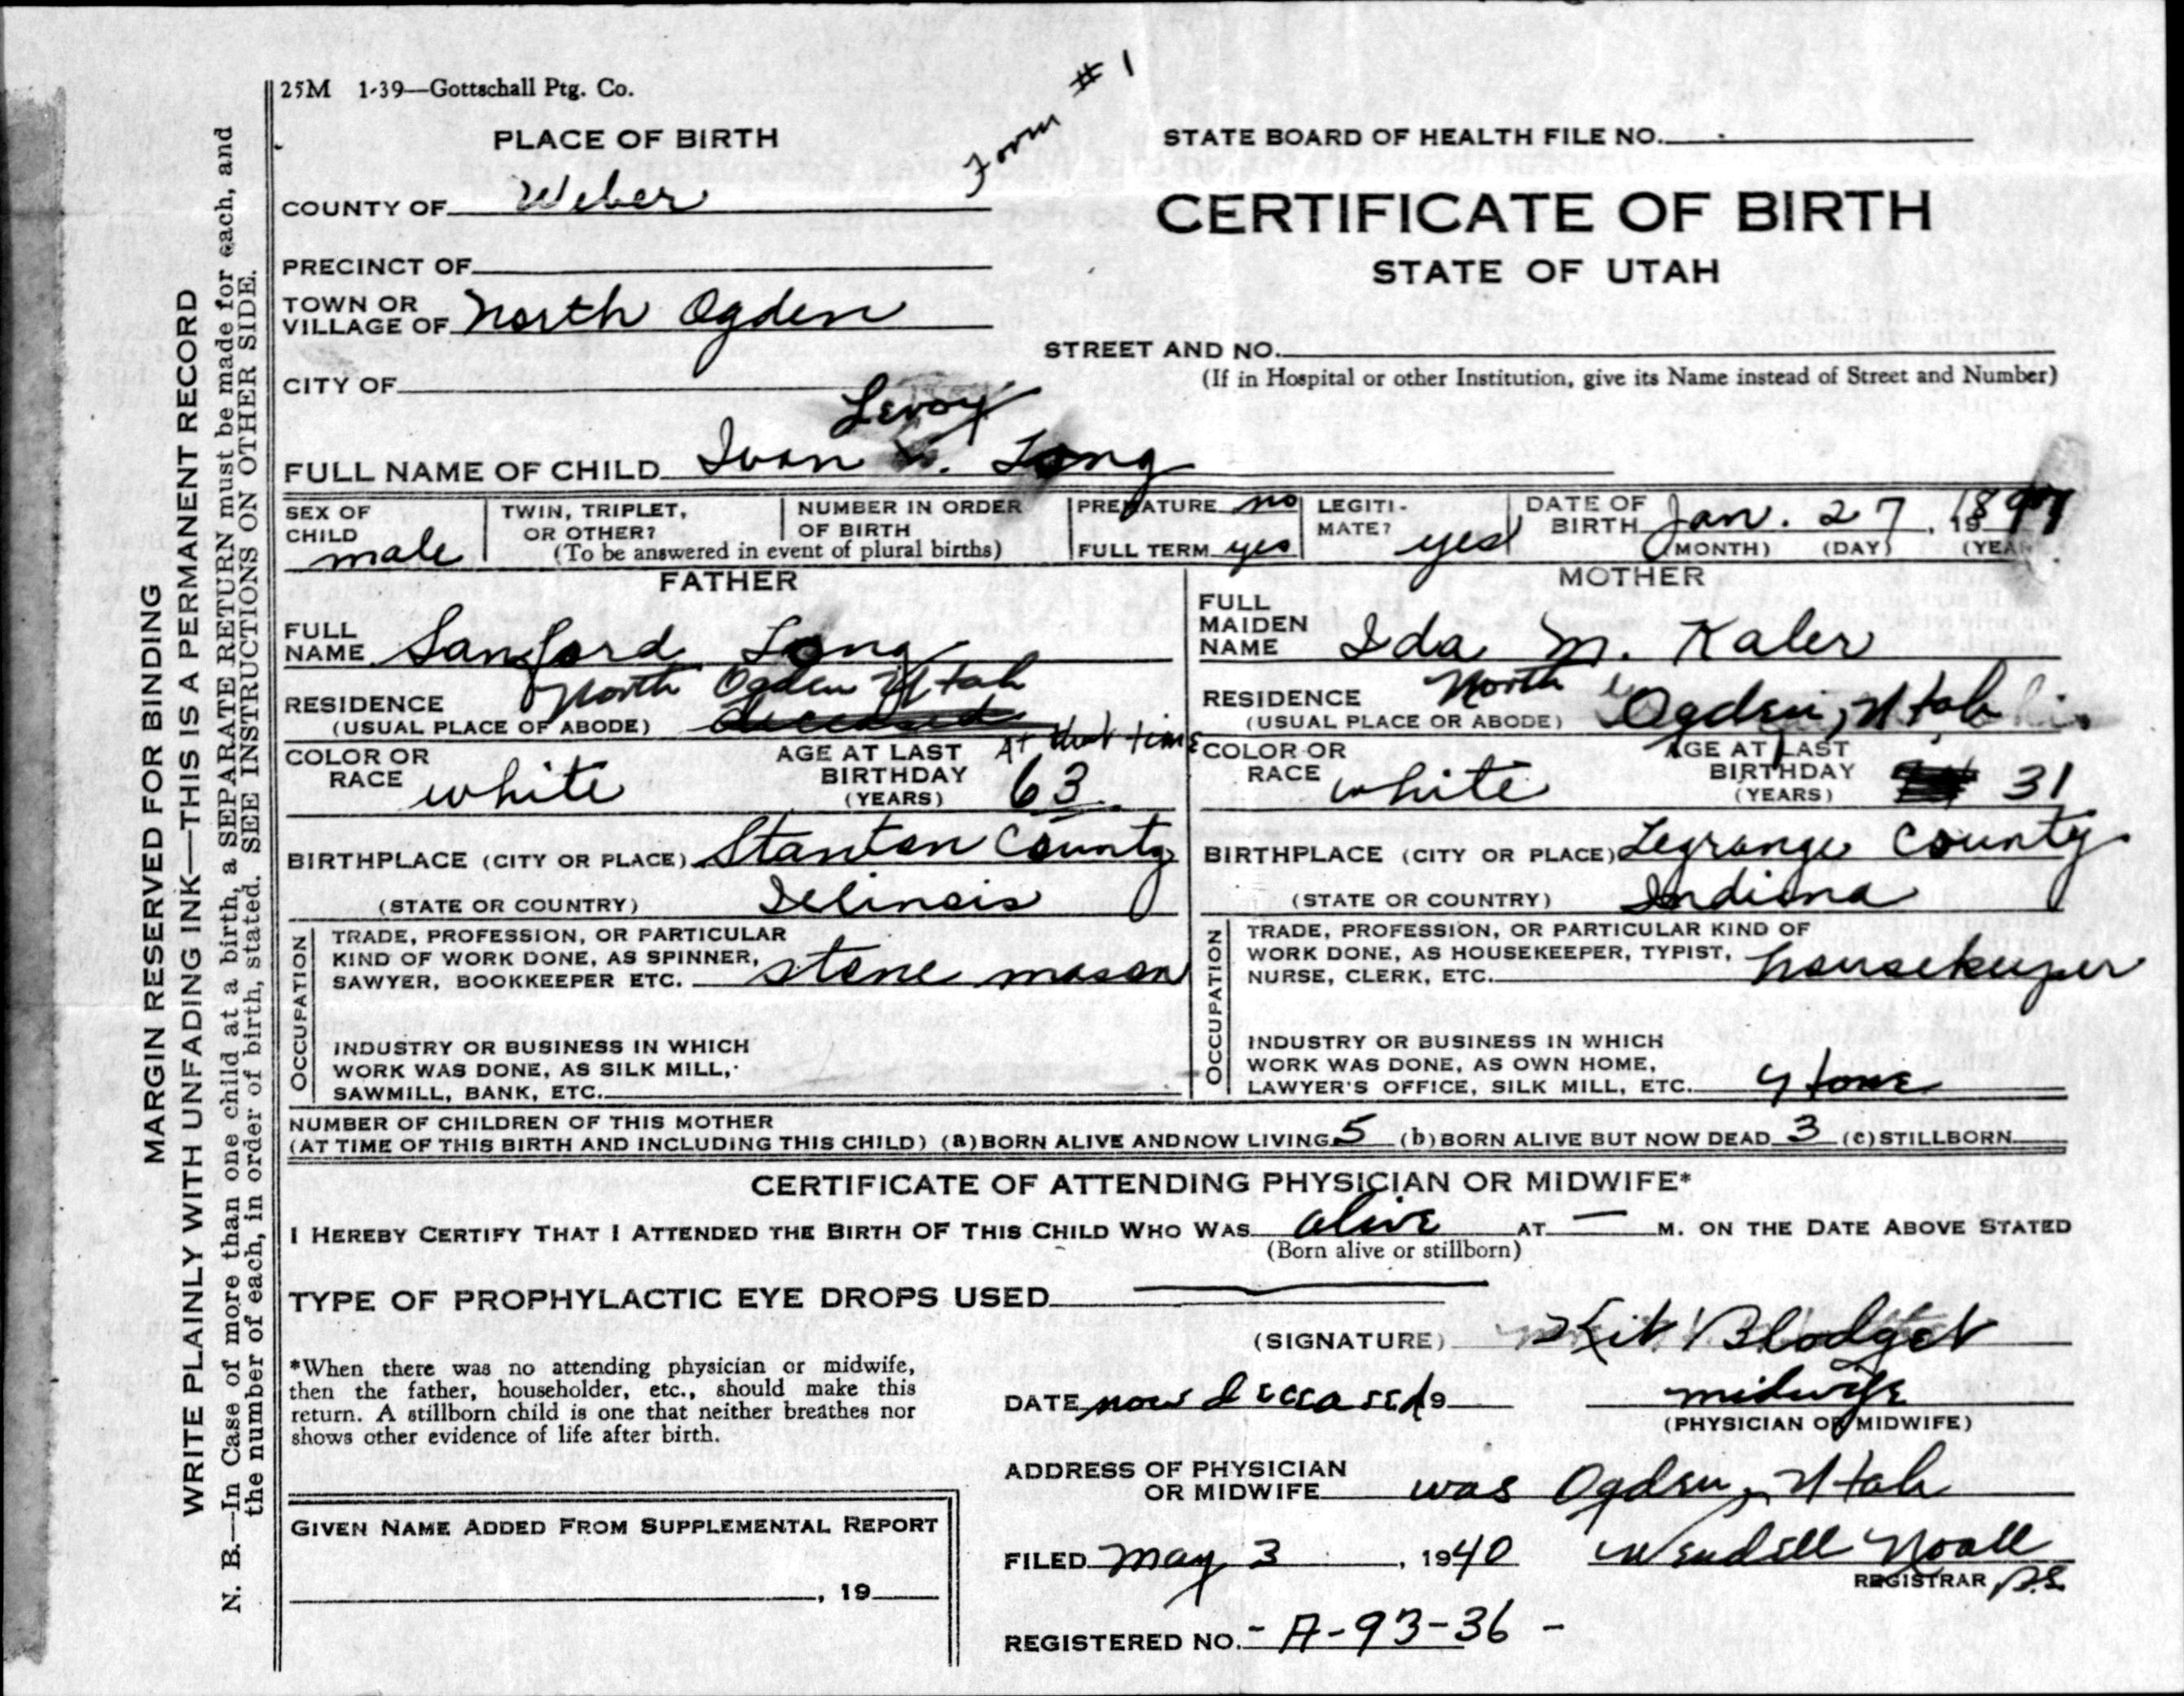 25M 1-39—Gottschall Ptg. Co.
Form # 1
PLACE OF BIRTH
STATE BOARD OF HEALTH FILE NO.
COUNTY OF Weber
CERTIFICATE OF BIRTH
STATE OF UTAH
PRECINCT OF
TOWN OR
VILLAGE OF North Ogden
STREET AND NO.
(If in Hospital or other Institution, give its Name instead of Street and Number)
CITY OF
Levoy
FULL NAME OF CHILD Ivan L. Long
SEX OF
CHILD
male
TWIN, TRIPLET,
OR OTHER?
NUMBER IN ORDER
OF BIRTH
(To be answered in event of plural births)
PREMATURE no
FULL TERM yes
LEGITI-
MATE? yes
DATE OF
BIRTH Jan. 27, 1897
(MONTH) (DAY) (YEAR)
FATHER
FULL
NAME Sanford Long
North Ogden Utah
RESIDENCE
(USUAL PLACE OF ABODE) deceased
COLOR OR
RACE white
AGE AT LAST
BIRTHDAY
(YEARS)
At that time
63
BIRTHPLACE (CITY OR PLACE) Stanton County
(STATE OR COUNTRY) Illinois
OCCUPATION
TRADE, PROFESSION, OR PARTICULAR
KIND OF WORK DONE, AS SPINNER,
SAWYER, BOOKKEEPER ETC. stone mason
INDUSTRY OR BUSINESS IN WHICH
WORK WAS DONE, AS SILK MILL,
SAWMILL, BANK, ETC.
MOTHER
FULL
MAIDEN
NAME Ida M. Kaler
RESIDENCE North
(USUAL PLACE OR ABODE) Ogden, Utah
COLOR OR
RACE white
AGE AT LAST
BIRTHDAY
(YEARS)
31
BIRTHPLACE (CITY OR PLACE) Legrange County
(STATE OR COUNTRY) Indiana
OCCUPATION
TRADE, PROFESSION, OR PARTICULAR KIND OF
WORK DONE, AS HOUSEKEEPER, TYPIST,
NURSE, CLERK, ETC. housekeeper
INDUSTRY OR BUSINESS IN WHICH
WORK WAS DONE, AS OWN HOME,
LAWYER'S OFFICE, SILK MILL, ETC. Home
NUMBER OF CHILDREN OF THIS MOTHER
(AT TIME OF THIS BIRTH AND INCLUDING THIS CHILD) (a) BORN ALIVE AND NOW LIVING 5 (b) BORN ALIVE BUT NOW DEAD 3 (c) STILLBORN
CERTIFICATE OF ATTENDING PHYSICIAN OR MIDWIFE*
I HEREBY CERTIFY THAT I ATTENDED THE BIRTH OF THIS CHILD WHO WAS alive AT — M. ON THE DATE ABOVE STATED
(Born alive or stillborn)
TYPE OF PROPHYLACTIC EYE DROPS USED
(SIGNATURE) Kit Blodget
*When there was no attending physician or midwife,
then the father, householder, etc., should make this
return. A stillborn child is one that neither breathes nor
shows other evidence of life after birth.
DATE now deceased 19
midwife
(PHYSICIAN OR MIDWIFE)
ADDRESS OF PHYSICIAN
OR MIDWIFE was Ogden, Utah
FILED May 3, 1940 Wendell Noall
REGISTRAR D.S.
REGISTERED NO. - A-93-36 -
GIVEN NAME ADDED FROM SUPPLEMENTAL REPORT
, 19
MARGIN RESERVED FOR BINDING
WRITE PLAINLY WITH UNFADING INK—THIS IS A PERMANENT RECORD
N. B.—In Case of more than one child at a birth, a SEPARATE RETURN must be made for each, and
the number of each, in order of birth, stated. SEE INSTRUCTIONS ON OTHER SIDE.